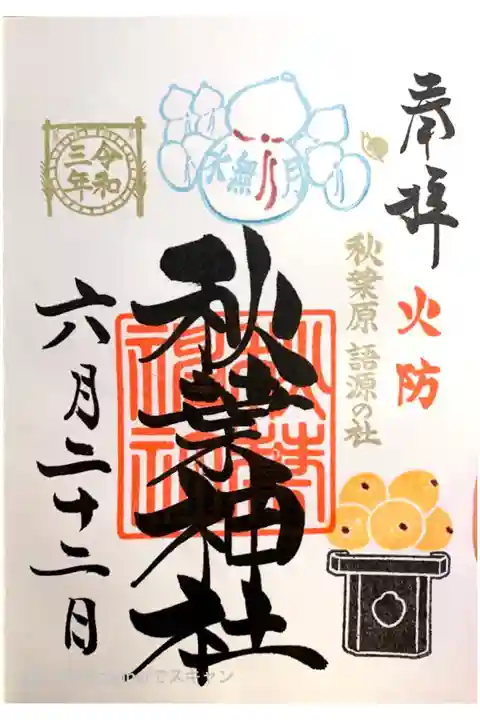 奉拝
火防
秋葉原 語源の社
水無月
秋葉神社
秋葉神社
令和三年
六月二十二日
でスキャン